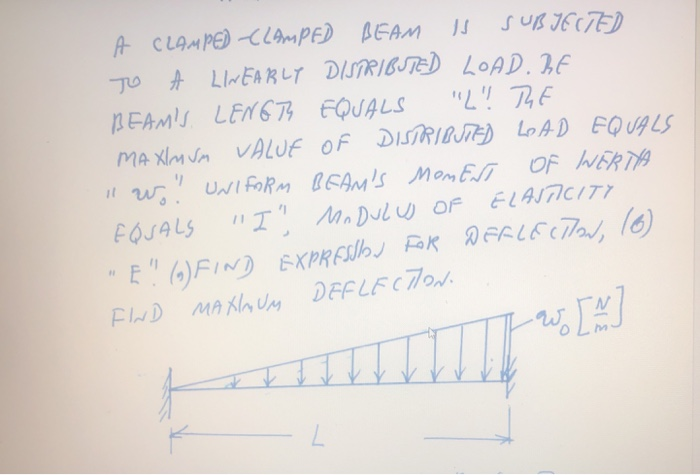 A CLAMPED-CLAMPED BEAM IS SUBJECTED
TO A LINEARLY DISTRIBUTED LOAD. THE
BEAM'S LENGTH EQUALS "L". THE
MAXIMUM VALUE OF DISTRIBUTED LOAD EQUALS
"w₀". UNIFORM BEAM'S MOMENT OF INERTIA
EQUALS "I", MODULUS OF ELASTICITY
"E". (a) FIND EXPRESSION FOR DEFLECTION, (b)
FIND MAXIMUM DEFLECTION.
w₀ [N/m]
L